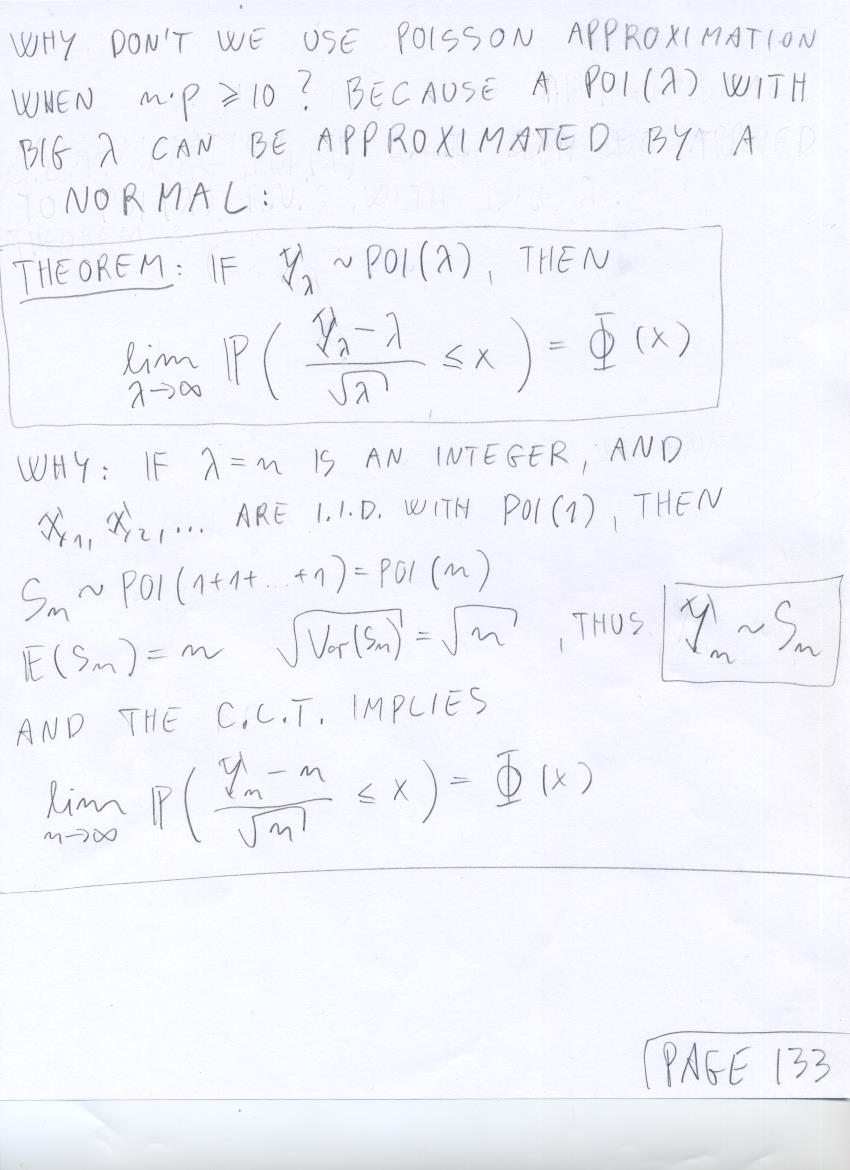 WHY DON'T WE USE POISSON APPROXIMATION
WHEN n·p ≥ 10 ? BECAUSE A POI(λ) WITH
BIG λ CAN BE APPROXIMATED BY A
NORMAL:
THEOREM: IF Y_λ ~ POI(λ), THEN
lim_{λ→∞} ℙ( (Y_λ - λ)/√λ ≤ x ) = Φ(x)
WHY: IF λ = n IS AN INTEGER, AND
X_1, X_2, ... ARE I.I.D. WITH POI(1), THEN
S_n ~ POI(1+1+...+1) = POI(n)
𝔼(S_n) = n √Var(S_n) = √n , THUS Y_n ~ S_n
AND THE C.L.T. IMPLIES
lim_{n→∞} ℙ( (Y_n - n)/√n ≤ x ) = Φ(x)
PAGE 133